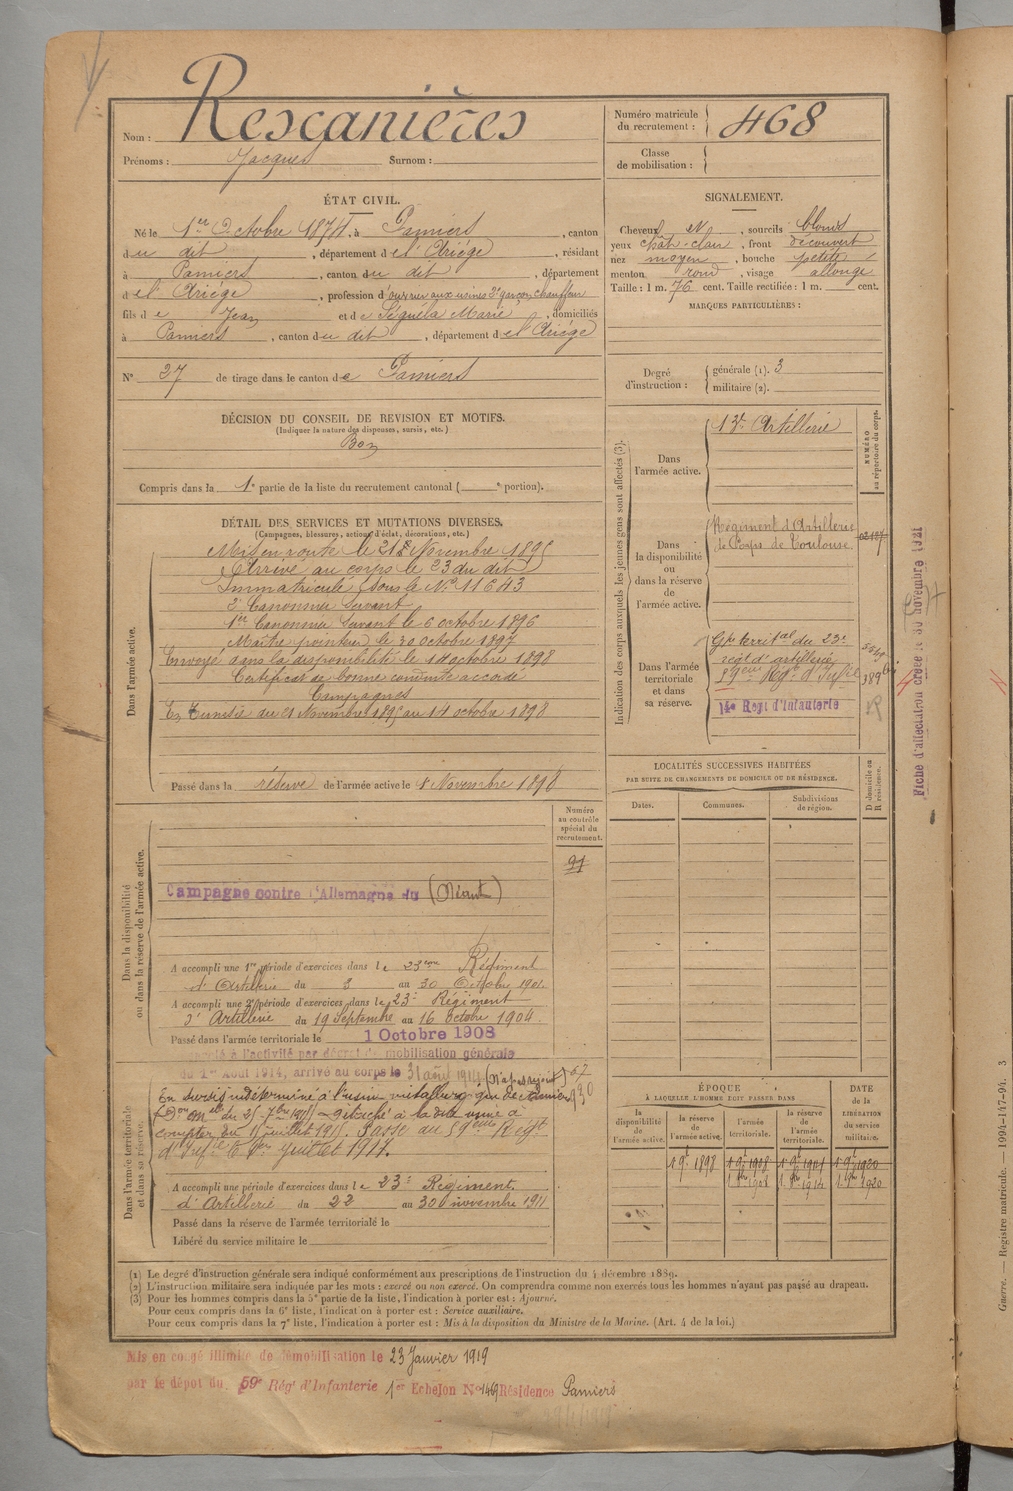 Nom : Rescanières
Prénoms : Jacques Surnom :
Numéro matricule du recrutement : 468
Classe de mobilisation :
ÉTAT CIVIL.
Né le 1er Octobre 1874, à Pamiers, canton
du dit, département de l'Ariége, résidant
à Pamiers, canton du dit, département
de l'Ariége, profession d'ouvrier aux usines 2° garçon chauffeur
fils de Jean et de Séguéla Marie, domiciliés
à Pamiers, canton du dit, département de l'Ariége
N° 27 de tirage dans le canton de Pamiers
SIGNALEMENT.
Cheveux N, sourcils blonds
yeux chât-clair, front découvert
nez moyen, bouche petite
menton rond, visage allongé
Taille : 1 m. 76 cent. Taille rectifiée : 1 m. cent.
MARQUES PARTICULIÈRES :
Degré d'instruction : générale (1). 3
militaire (2).
DÉCISION DU CONSEIL DE REVISION ET MOTIFS.
(Indiquer la nature des dispenses, sursis, etc.)
Bon
Compris dans la 1e partie de la liste du recrutement cantonal ( e portion).
DÉTAIL DES SERVICES ET MUTATIONS DIVERSES.
(Campagnes, blessures, actions d'éclat, décorations, etc.)
Dans l'armée active.
Mis en route le 21 Novembre 1895
Arrivé au corps le 23 du dit
Immatriculé sous le N° 11643
2e Canonnier Servant
1er Canonnier Servant le 6 octobre 1896
Maître pointeur le 30 octobre 1897
Envoyé dans la disponibilité le 14 octobre 1898
Certificat de bonne conduite accordé
Campagnes
En Tunisie du 21 Novembre 1895 au 14 octobre 1898
Passé dans la réserve de l'armée active le 1 Novembre 1898
Indication des corps auxquels les jeunes gens sont affectés (3).
NUMÉRO au répertoire du corps.
Dans l'armée active.
13e Artillerie
Dans la disponibilité ou dans la réserve de l'armée active.
Régiment d'Artillerie
de Corps de Toulouse
Dans l'armée territoriale et dans sa réserve.
Gpe territal du 23e
régt d'artillerie
59eme Régt d'Infie
14e Regt d'Infanterie
Fiche d'affectation créée le 30 novembre 1921
LOCALITÉS SUCCESSIVES HABITÉES
PAR SUITE DE CHANGEMENTS DE DOMICILE OU DE RÉSIDENCE.
Dates. Communes. Subdivisions de région. D domicile ou R résidence.
Dans la disponibilité ou dans la réserve de l'armée active.
Numéro au contrôle spécial du recrutement.
91
Campagne contre l'Allemagne du (Néant)
A accompli une 1re période d'exercices dans le 23eme Régiment
d'Artillerie du 3 au 30 Octobre 1901.
A accompli une 2e période d'exercices dans le 23e Régiment
d'Artillerie du 19 Septembre au 16 Octobre 1904.
Passé dans l'armée territoriale le 1 Octobre 1908
Dans l'armée territoriale et dans sa réserve.
Rappelé à l'activité par décret de mobilisation générale
du 1er Août 1914, arrivé au corps le 31 août 1914 (N'a pas rejoint)
En sursis indéterminé à l'usine métallurgique de Pamiers
compter du 11 juillet 1915. Passé au 59eme Régt
d'Infie le 1er juillet 1917.
A accompli une période d'exercices dans le 23e Régiment
d'Artillerie du 22 au 30 novembre 1911
Passé dans la réserve de l'armée territoriale le
Libéré du service militaire le
ÉPOQUE
À LAQUELLE L'HOMME DOIT PASSER DANS
DATE de la LIBÉRATION du service militaire.
la disponibilité de l'armée active. la réserve de l'armée active. l'armée territoriale. la réserve de l'armée territoriale.
1 9t 1898
(1) Le degré d'instruction générale sera indiqué conformément aux prescriptions de l'instruction du 4 décembre 1889.
(2) L'instruction militaire sera indiquée par les mots : exercé ou non exercé. On comprendra comme non exercés tous les hommes n'ayant pas passé au drapeau.
(3) Pour les hommes compris dans la 5e partie de la liste, l'indication à porter est : Ajourné.
Pour ceux compris dans la 6e liste, l'indication à porter est : Service auxiliaire.
Pour ceux compris dans la 7e liste, l'indication à porter est : Mis à la disposition du Ministre de la Marine. (Art. 4 de la loi.)
Mis en congé illimité de démobilisation le 23 Janvier 1919
par le dépôt du 59e Rég' d'Infanterie 1er Echelon N° 1469 Résidence Pamiers
Guerre. — Registre matricule. — 1994-147-94. 3